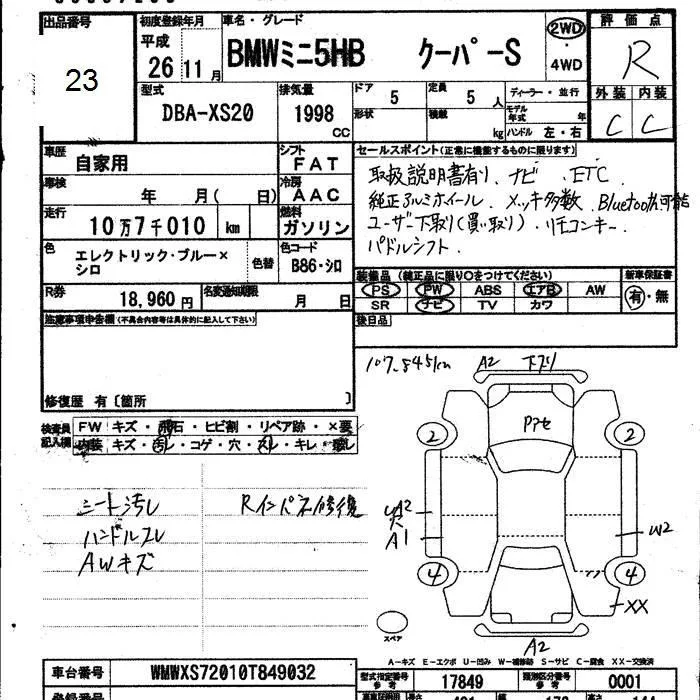 出品番号
23
初度登録年月
平成
26 11 月
車名・グレード
BMWミニ5HB クーパーS
2WD
・
4WD
評価点
R
外装 内装
C C
型式
DBA-XS20
排気量
1998
CC
ドア 5
形状
定員 5 人
積載 kg
ディーラー・並行
モデル年式 年
ハンドル 左・右
車歴
自家用
シフト
FAT
車検
年 月( 日)
冷房
AAC
走行
10万7千010 km
燃料
ガソリン
色
エレクトリック・ブルー×
シロ
色替
色コード
B86・シロ
R券
18,960 円
名変通知期限
月 日
セールスポイント(正常に機能するものに限ります)
取扱説明書有り、ナビ、ETC
純正アルミホイール、メッキ多数、Bluetooth可能
ユーザー下取り(買い取り)、リモコンキー、
パドルシフト、
装備品 (純正品に限り○をつけてください)
PS PW ABS エアB AW
SR ナビ TV カワ
新車保証書
有・無
後日品
注意事項申告欄(不具合内容等は具体的に記入して下さい)
修復歴 有〔箇所 〕
検査員
記入欄
FW キズ・飛石・ヒビ割・リペア跡・×要
内装 キズ・汚レ・コゲ・穴・スレ・キレ・
シート汚レ
ハンドルスレ
AWキズ
Rインパネ修復
107,845km
A2
下ズリ
Pアセ
2
2
A2
A1
W2
4
4
XX
A2
スペア
A-キズ E-エクボ U-凹み W-補修跡 S-サビ C-腐食 XX-交換済
車台番号
WMWXS72010T849032
型式指定番号
参考
17849
類別区分番号
参考
0001
登録番号